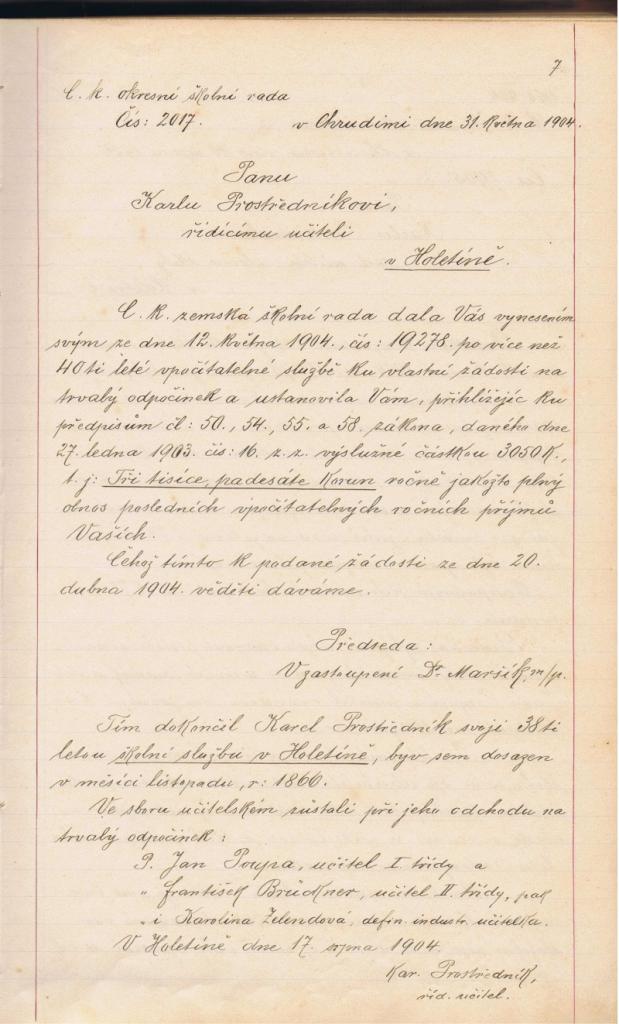 7
C. k. okresní školní rada
Čís: 2017. v Chrudimi dne 31. května 1904.
Panu
Karlu Prostředníkovi,
řídícímu učiteli
v Holetíně.
C. k. zemská školní rada dala Vás vynesením
svým ze dne 12. května 1904., čís: 19278. po více než
40ti leté vpočítatelné službě ku vlastní žádosti na
trvalý odpočinek a ustanovila Vám, přihlížejíc ku
předpisům čl: 50., 54., 55. a 58. zákona, daného dne
27. ledna 1903. čís: 16. z. z. výslužné částkou 3050 K.,
t. j: Tři tisíce, padesáte Korun ročně jakožto plný
obnos posledních vpočítatelných ročních příjmů
Vašich.
Čehož tímto k podané žádosti ze dne 20.
dubna 1904. věděti dáváme.
Předseda:
V zastoupení Dr Maršík m/p.
Tím dokončil Karel Prostředník svoji 38ti
letou školní službu v Holetíně, byv sem dosazen
v měsíci listopadu, r: 1866.
Ve sboru učitelském zůstali při jeho odchodu na
trvalý odpočinek:
P. Jan Poupa, učitel I. třídy a
„ František Brückner, učitel II. třídy, pak
„ i Karolina Zelendová, defin. industr. učitelka.
V Holetíně dne 17. srpna 1904.
Kar. Prostředník,
říd. učitel.